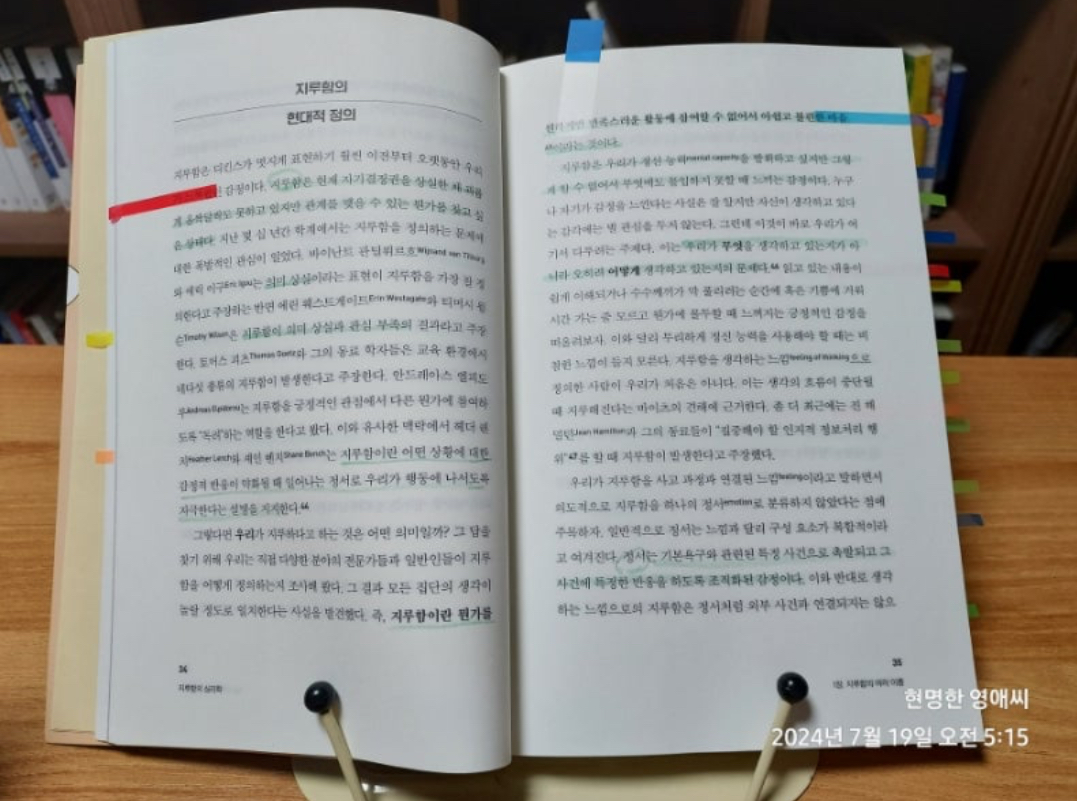 지루함의
현대적 정의
지루함은 디킨스가 멋지게 표현하기 훨씬 이전부터 오랫동안 우리
감정이다. 지루함은 현재 자기결정권을 상실한 채
게 음 못하고 있지만 관계를 맺을 수 있는 뭔가를 찾고 싶
은 상태다. 지난 몇 십 년간 학계에서는 지루함을 정의하는 문제에
대한 폭발적인 관심이 일었다. 바이난트 판틸뷔르흐Wijnand van Tilburg
와 에릭 이구Eric Igou는 의미 상실이라는 표현이 지루함을 가장 잘 정
의한다고 주장하는 반면 에린 웨스트게이트Erin Westgate와 티머시 윌
슨Timothy Wilson은 지루함이 의미 상실과 관심 부족의 결과라고 주장
한다. 토머스 괴츠Thomas Goetz와 그의 동료 학자들은 교육 환경에서
네다섯 종류의 지루함이 발생한다고 주장한다. 안드레아스 엘피도
루Andreas Elpidorou는 지루함을 긍정적인 관점에서 다른 뭔가에 참여하
도록 “독려”하는 역할을 한다고 봤다. 이와 유사한 맥락에서 헤더 렌
치Heather Lench와 셰인 벤치Shane Bench는 지루함이란 어떤 상황에 대한
감정적 반응이 약화될 때 일어나는 정서로 우리가 행동에 나서도록
자극한다는 설명을 지지한다.
그렇다면 우리가 지루하다고 하는 것은 어떤 의미일까? 그 답을
찾기 위해 우리는 직접 다양한 분야의 전문가들과 일반인들이 지루
함을 어떻게 정의하는지 조사해 봤다. 그 결과 모든 집단의 생각이
놀랄 정도로 일치한다는 사실을 발견했다. 즉, 지루함이란 뭔가를
34
지루함의 심리학
만족스러운 활동에 참여할 수 없어서 아쉽고 불편한 마음
이라는 것이다.
지루함은 우리가 정신 능력mental capacity을 발휘하고 싶지만 그렇
게 할 수 없어서 무엇에도 몰입하지 못할 때 느끼는 감정이다. 누구
나 자기가 감정을 느낀다는 사실은 잘 알지만 자신이 생각하고 있다
는 감각에는 별 관심을 두지 않는다. 그런데 이것이 바로 우리가 여
기서 다루려는 주제다. 이는 우리가 무엇을 생각하고 있는지가 아
니라 오히려 어떻게 생각하고 있는지의 문제다. 읽고 있는 내용이
쉽게 이해되거나 수수께끼가 막 풀리려는 순간에 혹은 기쁨에 겨워
시간 가는 줄 모르고 뭔가에 몰두할 때 느껴지는 긍정적인 감정을
떠올려보자. 이와 달리 무리하게 정신 능력을 사용해야 할 때는 비
참한 느낌이 들지 모른다. 지루함을 생각하는 느낌feeling of thinking으로
정의한 사람이 우리가 처음은 아니다. 이는 생각의 흐름이 중단될
때 지루해진다는 바이츠의 견해에 근거한다. 좀 더 최근에는 진 해
밀턴Jean Hamilton과 그의 동료들이 “집중해야 할 인지적 정보처리 행
위”를 할 때 지루함이 발생한다고 주장했다.
우리가 지루함을 사고 과정과 연결된 느낌feeling이라고 말하면서
의도적으로 지루함을 하나의 정서emotion로 분류하지 않았다는 점에
주목하자. 일반적으로 정서는 느낌과 달리 구성 요소가 복합적이라
고 여겨진다. 정서는 기본욕구와 관련된 특정 사건으로 촉발되고 그
사건에 특정한 반응을 하도록 조직화된 감정이다. 이와 반대로 생각
하는 느낌으로의 지루함은 정서처럼 외부 사건과 연결되지는 않으
35
1장. 지루함의 여러 이름
현명한 영애씨
2024년 7월 19일 오전 5:15